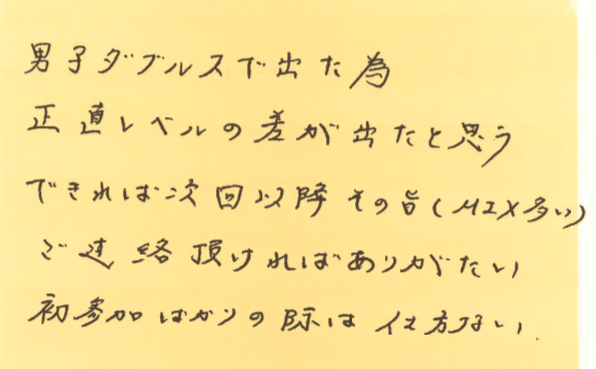 男子ダブルスで出た為
正直レベルの差が出たと思う
できれば次回以降その旨(MIX多い)
ご連絡頂ければありがたい
初参加ばかりの際は仕方ない.